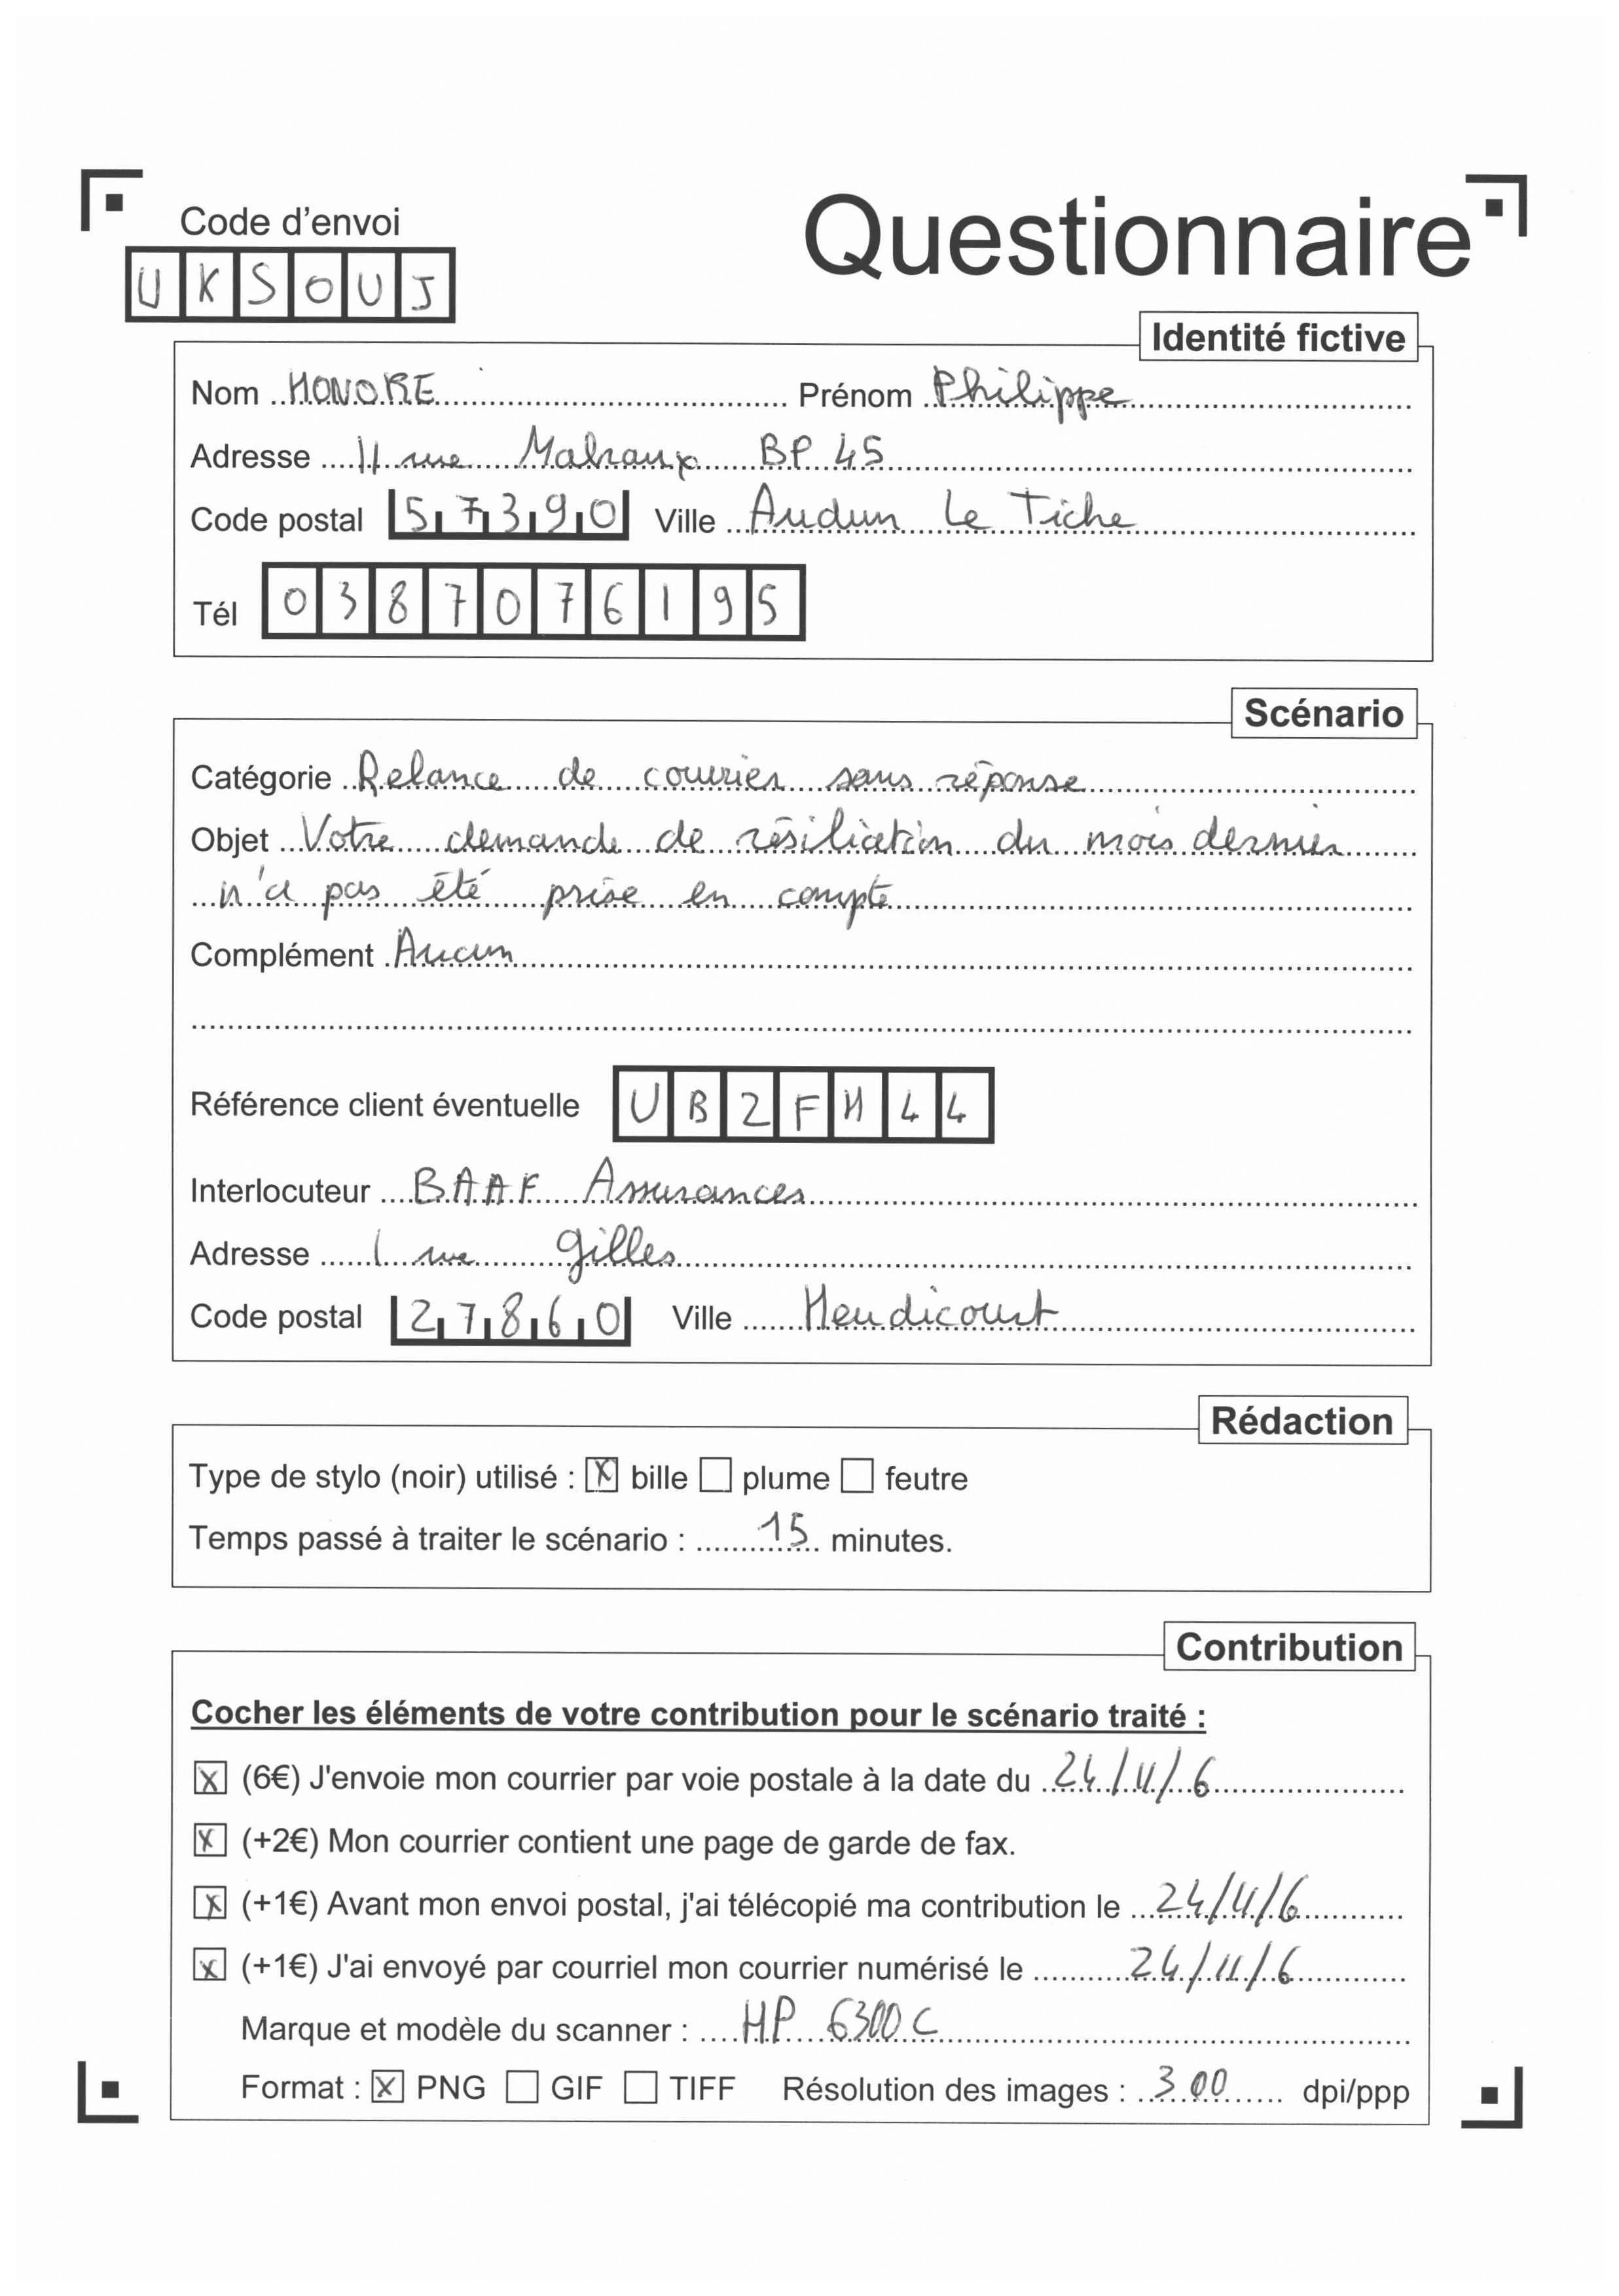 Code d'envoi
Questionnaire
UKSOUJ
Identité fictive
Nom HONORE Prénom Philippe
Adresse 11 rue Malraux BP 45
Code postal 57390 Ville Audun Le Tiche
Tél 0387076195
Scénario
Catégorie Relance de courrier sans réponse
Objet Votre demande de résiliation du mois dernier
n'a pas été prise en compte
Complément Aucun
Référence client éventuelle UB2FH44
Interlocuteur BAAF Assurances
Adresse 1 rue Gilles
Code postal 27860 Ville Heudicourt
Rédaction
Type de stylo (noir) utilisé : X bille plume feutre
Temps passé à traiter le scénario : 15 minutes.
Contribution
Cocher les éléments de votre contribution pour le scénario traité :
X (6€) J'envoie mon courrier par voie postale à la date du 24/11/6
X (+2€) Mon courrier contient une page de garde de fax.
X (+1€) Avant mon envoi postal, j'ai télécopié ma contribution le 24/11/6
X (+1€) J'ai envoyé par courriel mon courrier numérisé le 24/11/6
Marque et modèle du scanner : HP 6300C
Format : X PNG GIF TIFF Résolution des images : 300 dpi/ppp